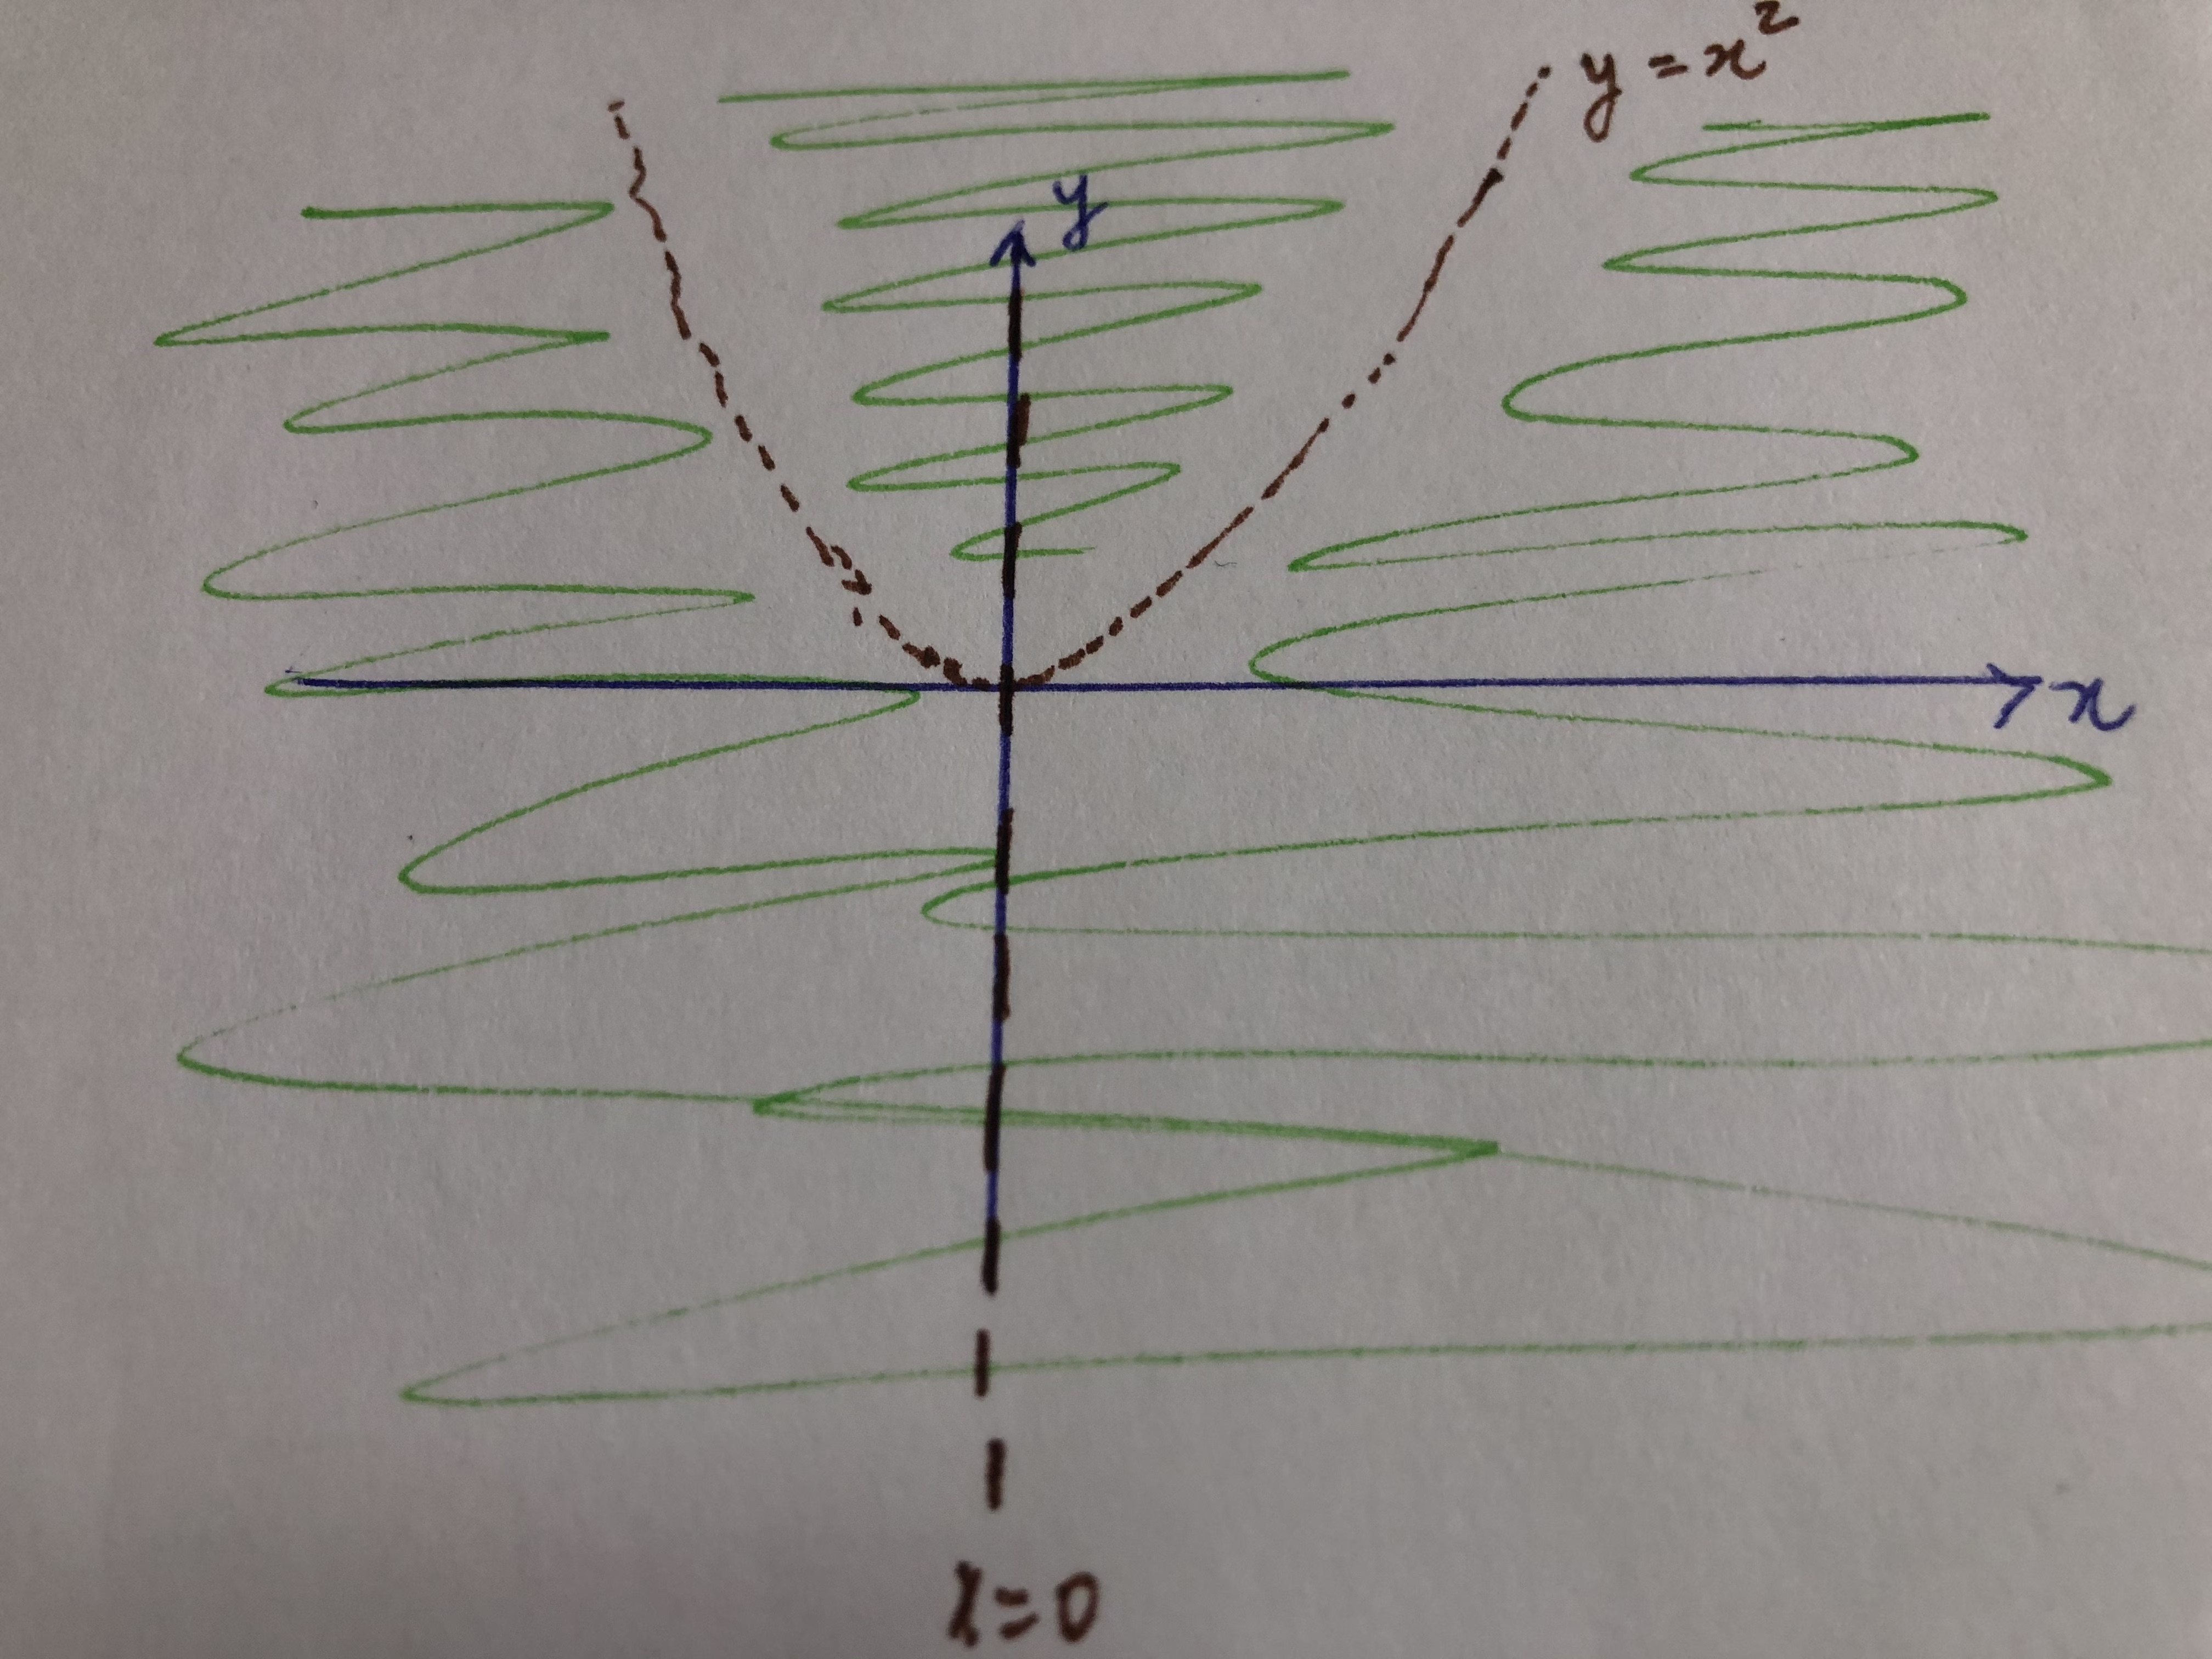 y = x²
y
x
x=0